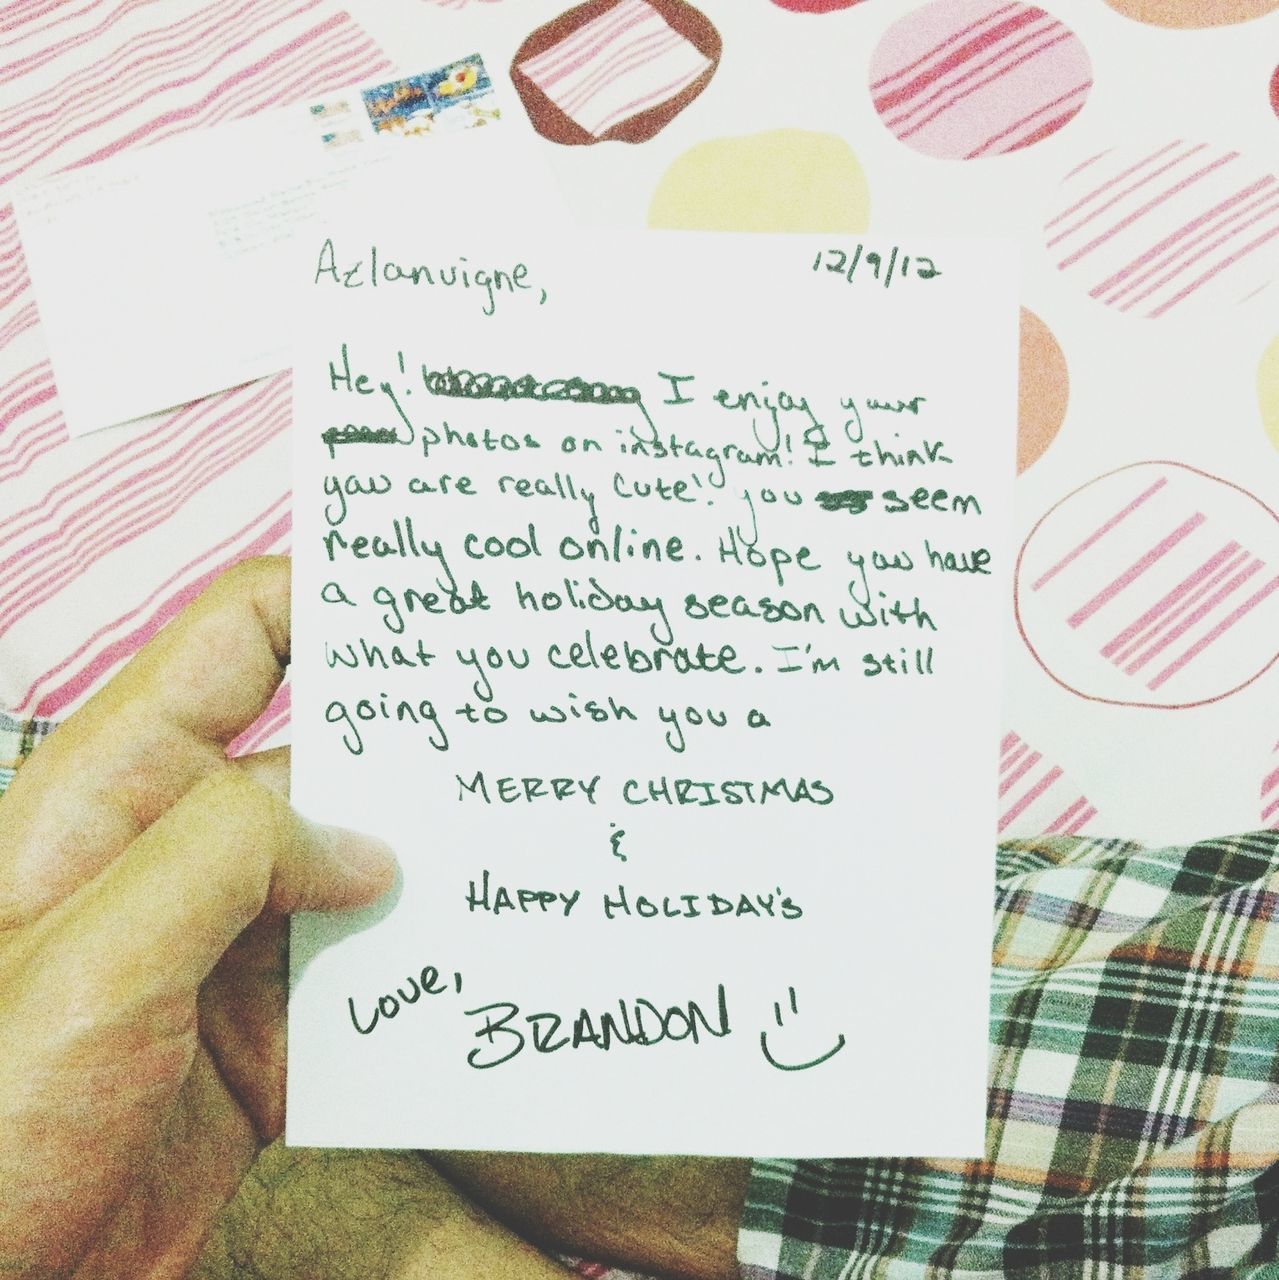 Azlanvigne,
12/9/12
Hey! I enjoy your
photos on instagram! I think
you are really cute! you seem
really cool online. Hope you have
a great holiday season with
what you celebrate. I'm still
going to wish you a
MERRY CHRISTMAS
&
HAPPY HOLIDAY'S
Love,
BRANDON